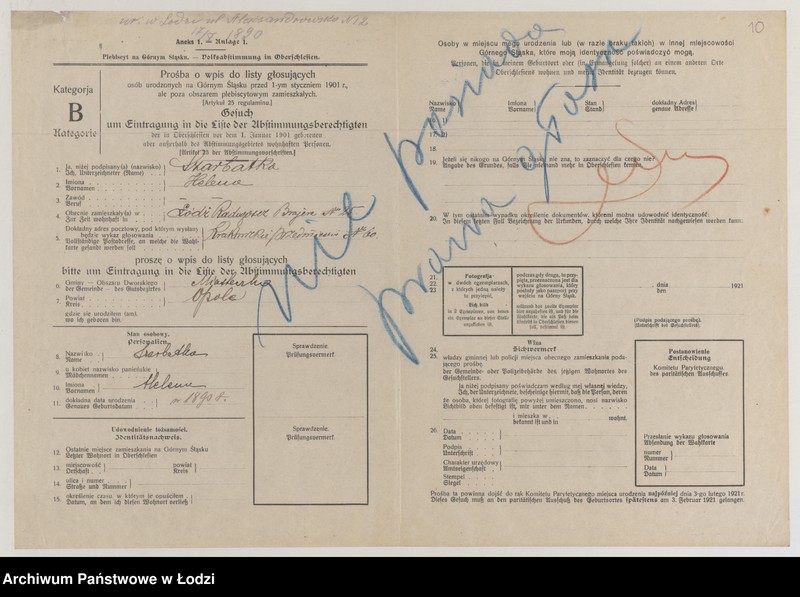 ur. w Łodzi ul Aleksandrowska N 12
1890
10
Aneks 1. — Anlage 1.
Plebiscyt na Górnym Śląsku. — Volksabstimmung in Oberschlesien.
Kategorja
B
Kategorie
Prośba o wpis do listy głosujących
osób urodzonych na Górnym Śląsku przed 1-ym styczniem 1901 r.,
ale poza obszarem plebiscytowym zamieszkałych.
[Artykuł 25 regulaminu.]
Gesuch
um Eintragung in die Liste der Abstimmungsberechtigten
der in Oberschlesien vor dem 1. Januar 1901 geborenen
aber außerhalb des Abstimmungsgebietes wohnhaften Personen.
[Artikel 25 der Abstimmungsvorschriften.]
1. Ja, niżej podpisany(a) (nazwisko)
Ich, Unterzeichneter (Name)
Szarbatka
2. Imiona
Vornamen
Helena
3. Zawód
Beruf
4. Obecnie zamieszkały(a) w
Zur Zeit wohnhaft in
Łódź Radogoszcz
5. Dokładny adres pocztowy, pod którym wysłany
będzie wykaz głosowania
Vollständige Postadresse, an welche die Wahl-
karte gesandt werden soll
proszę o wpis do listy głosujących
bitte um Eintragung in die Liste der Abstimmungsberechtigten
6. Gminy — Obszaru Dworskiego
der Gemeinde — des Gutsbezirkes
7. Powiat
Kreis
Opole
gdzie się urodziłem (am),
wo ich geboren bin.
Stan osobowy.
Personalien.
8. Nazwisko
Name
Szarbatka
9. u kobiet nazwisko panieńskie
Mädchennamen
10. Imiona
Vornamen
Helena
11. dokładna data urodzenia
Genaues Geburtsdatum
w 1890 r.
Sprawdzenie
Prüfungsvermerk.
Udowodnienie tożsamości.
Identitätsnachweis.
12. Ostatnie miejsce zamieszkania na Górnym Śląsku
Letzter Wohnort in Oberschlesien
13. miejscowość powiat
Ortschaft Kreis
14. ulica i numer
Straße und Nummer
15. określenie czasu, w którym je opuściłem
Datum, an dem ich diesen Wohnort verließ
Sprawdzenie.
Prüfungsvermerk.
Osoby w miejscu mego urodzenia lub (w razie braku takich) w innej miejscowości
Górnego Śląska, które moją identyczność poświadczyć mogą.
Personen, die an meinem Geburtsort aber (in Ermangelung solcher) an einem anderen Orte
Oberschlesiens wohnen und meine Identität bezeugen können.
Nazwisko Imiona Stan dokładny Adres
Name Vorname Stand genaue Adresse
17.
18.
19. Jeżeli się nikogo na Górnym Śląsku nie zna, to zaznaczyć dla czego nie?
Angabe des Grundes, falls Sie niemand mehr in Oberschlesien kennen.
nie posiada
prawa głosu
20. W tym ostatnim wypadku określenie dokumentów, któremi można udowodnić identyczność:
In diesem letzten Fall Bezeichnung der Urkunden, durch welche Ihre Identität nachgewiesen werden kann:
21.
22.
23.
Fotografja
w dwóch egzemplarzach,
z których jedną należy
tu przylepić.
Lichtbild
in 2 Exemplaren, von denen
ein Exemplar an dieser Stelle
anzukleben ist.
podczas gdy druga, tu przy-
pięta, przeznaczona jest dla
wykazu głosowania, który
posłuży jako paszport przy
wejściu na Górny Śląsk.
während das zweite Exemplar
hier angeheftet ist, und für die
Wahlkarte, die als Paß beim
Eintritt in Oberschlesien dienen
soll, bestimmt ist.
, dnia
den
1921
(Podpis podającego prośbę.)
(Unterschrift des Gesuchstellers.)
24. Wiza
Sichtvermerk
25. władzy gminnej lub policji miejsca obecnego zamieszkania poda-
jącego prośbę.
der Gemeinde- oder Polizeibehörde des jetzigen Wohnortes des
Gesuchstellers.
Ja niżej podpisany poświadczam według mej własnej wiedzy,
Ich, der Unterzeichnete, bescheinige hiermit, daß die Person, deren
że osoba, której fotografję powyżej umieszczono, nosi nazwisko
Lichtbild oben befestigt ist, mir unter dem Namen
i mieszka w wohnt.
bekannt ist und in
26. Data
Datum
Podpis
Unterschrift
Charakter urzędowy
Amtseigenschaft
Stempel
Siegel
Postanowienie
Entscheidung
Komitetu Parytetycznego.
des paritätischen Ausschusses.
Przesłanie wykazu głosowania
Absendung der Wahlkarte
numer
Nummer
Data
Datum
Prośba ta powinna dojść do rąk Komitetu Parytetycznego miejsca urodzenia najpóźniej dnia 3-go lutego 1921 r.
Dieses Gesuch muß an den paritätischen Ausschuß des Geburtsortes spätestens am 3. Februar 1921 gelangen.
Archiwum Państwowe w Łodzi